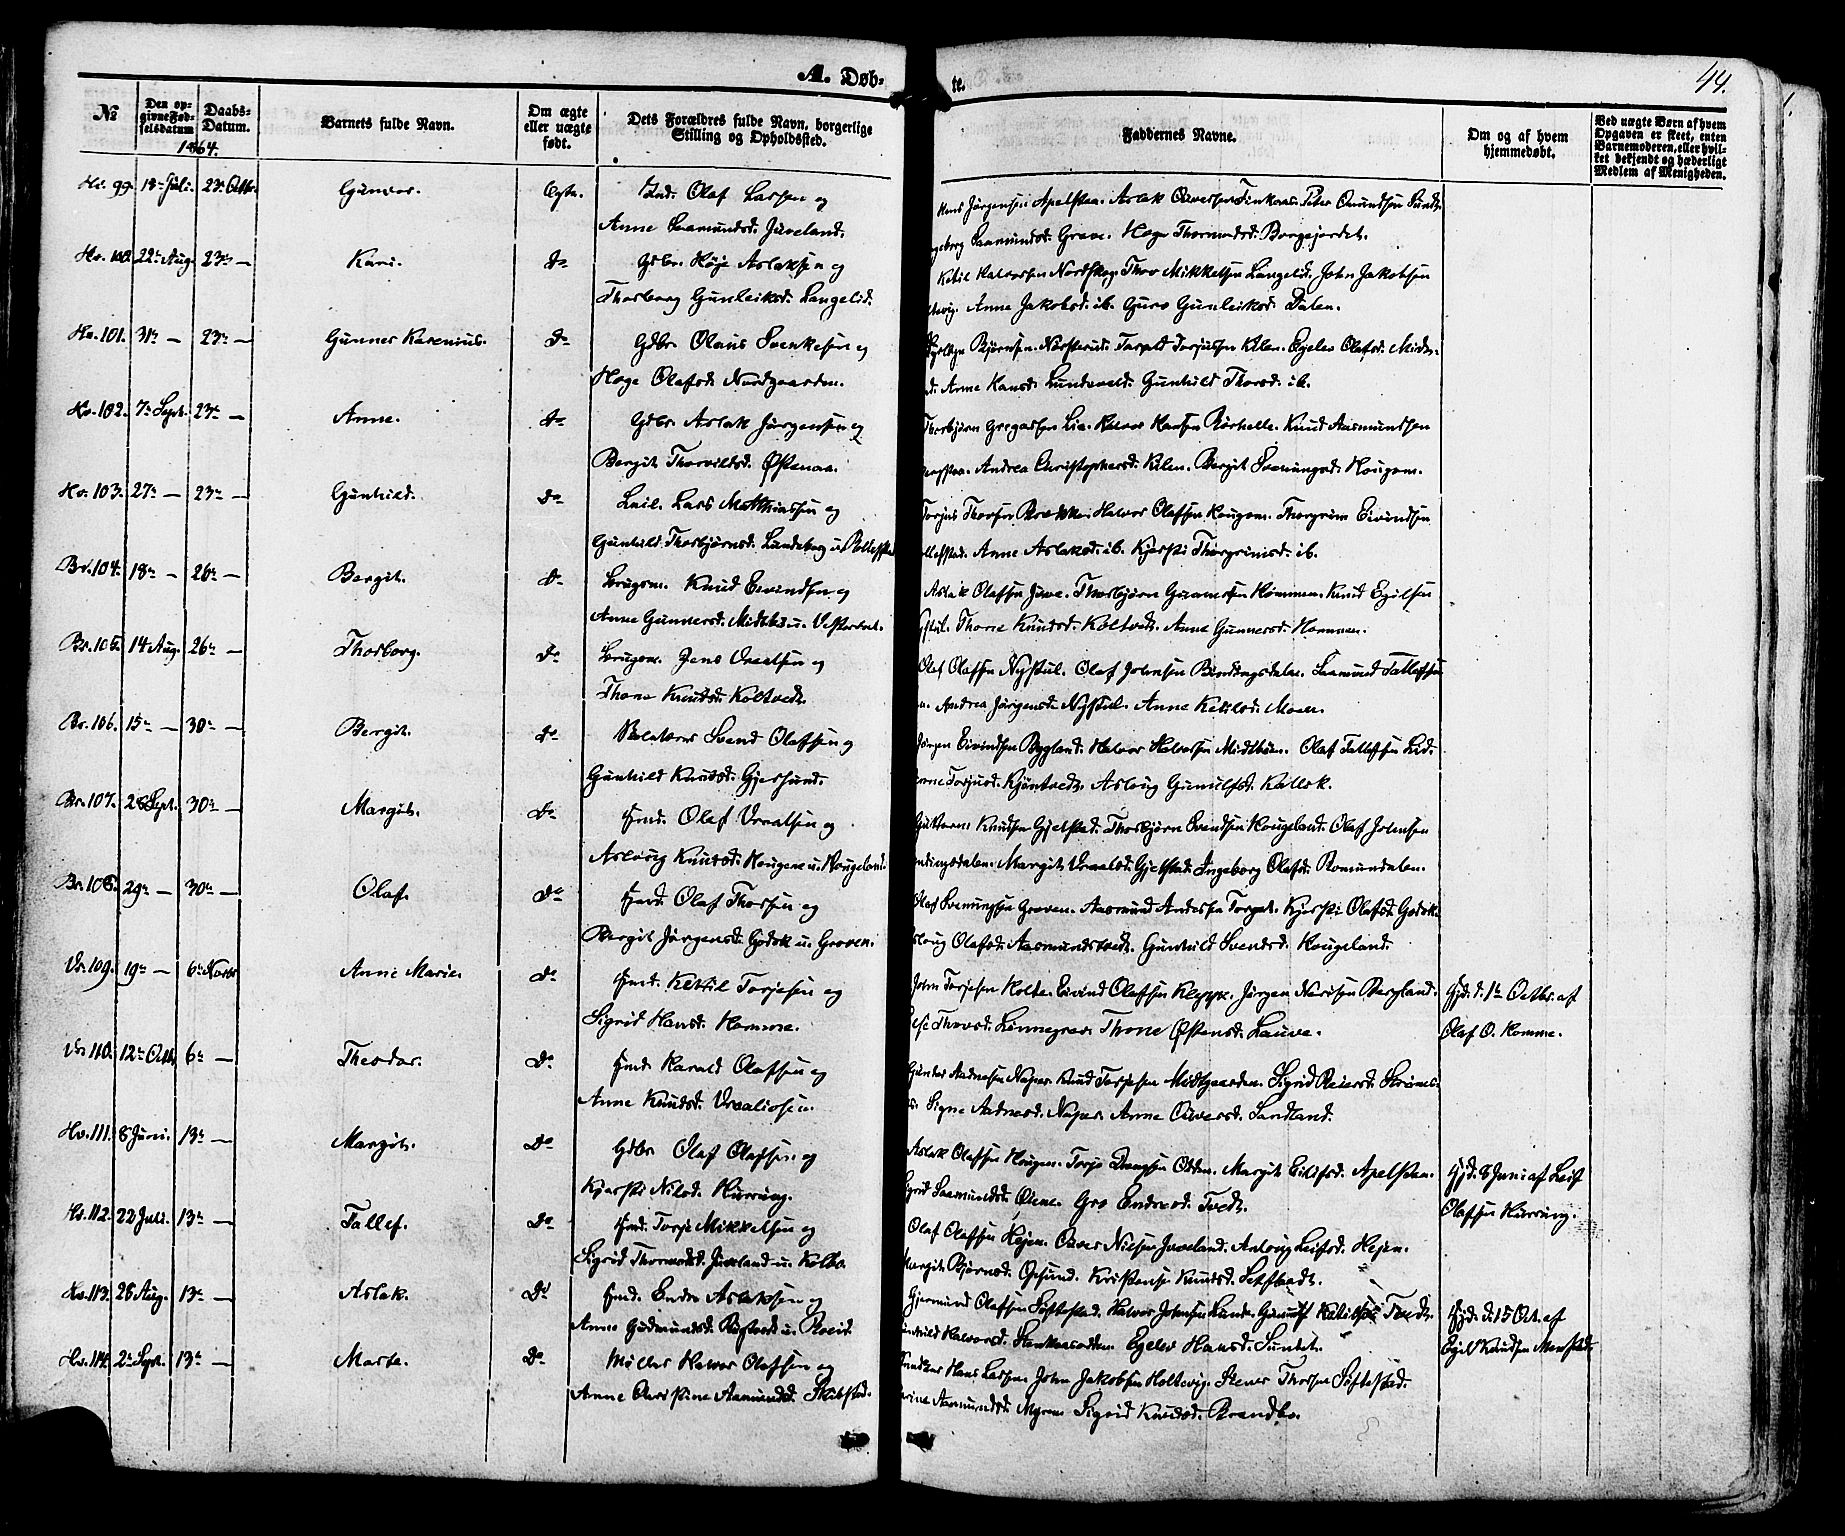 A. Døb-
te.
44.
№
Den op-
givne Fød-
selsdatum
Daabs-
Datum.
Barnets fulde Navn.
Om ægte
eller uægte
født.
Dets Forældres fulde Navn, borgerlige
Stilling og Opholdssted.
Faddernes Navne.
Om og af hvem
hjemmedøbt.
Ved uægte Børn af hvem
Opgaven er skeet, enten
Barnemoderen, eller hvil-
ket bekjendt og hæderligt
Medlem af Menigheden.
1864.
Hv. 99. 18 Juli. 23 Octbr. Gunvor. Egte. Ind. Olaf Larsen og
Anne Saamundsd. Juveland.
Hans Jørgensen Apelstaa. Aslak
Saamundsd. Grave. Hege Thormodsd. Borgejordet.
Hv. 100. 22 Aug. 23 — Kari. Do Gdbr. Høje Aslaksen og
Thorborg Gunleiksd. Langelid.
Ketil Halvorsen Nordskog. Thor Mikkelsen Langelid. John Jakobsen
Anne Jakobsd. ib. Guro Gunleiksd. Dalen.
Hv. 101. 31 — 23 — Gunner Karenius. Do Gdbr. Olaus Svenkesen og
Hege Olafsd. Nordgaarden.
Bjørnsen Tarald Torjussen Kilen. Egelev Olafsd.
Anne Hansd. Lundevald. Gunhild Thorsd. ib.
Hv. 102. 7 Sept. 23 — Anne. Do Gdbr. Aslak Jørgensen og
Bergit Thorvildsd. Østenaa.
Thorbjørn Gregarsen Lie. Halvor Hansen Rørhelle. Knud Aasmundsen
Andrea Christophersd. Kilen. Bergit Sveinungsd. Hougom.
Hv. 103. 27 — 23 — Gunhild. Do Leil. Lars Matthiassen og
Gunhild Thorbjørnsd. Lundeberg u. Rollefstad
Torjus Thorsen Brekke. Halvor Olafsen Hougom. Thorgrim Eivindsen
Anne Aslaksd. ib. Kjersti Thorgrimsd. ib.
Br. 104. 18 — 26 — Bergit. Do Brugsm. Knud Eivindsen og
Anne Gunnersd. Midtbø u.
Aslak Olafsen Juve. Thorbjørn Gunnersen Hommen. Knud Egilsen
Thone Knudsd. Koltvedt. Anne Gunnersd. Hommen.
Br. 105. 14 Aug. 26 — Thorborg. Do Brugsm. Jens Vraalsen og
Thone Knudsd. Koltvedt.
Olaf Olafsen Nystul. Olaf Johnsen Saamund Tallefsen
Andrea Jørgensd. Nystul. Anne Ketilsd. Moen.
Br. 106. 15 — 30 — Bergit. Do Svend Olafsen og
Gunhild Knudsd. Gjersund.
Jørgen Eivindsen Bygland. Halvor Halvorsen Midtbøn. Olaf Tallefsen Lid.
Torjusd. Kjøntvedt. Aslaug Gunulfsd. Kallok.
Br. 107. 28 Sept. 30 — Margit. Do Hmd. Olaf Vraalsen og
Aslaug Knudsd. Hougene u. Hougeland.
Guttorm Knudsen Gjelstad. Thorbjørn Svendsen Hougeland. Olaf Johnsen
Margit Vraalsd. Gjelstad. Ingeborg Olafsd. Romundalen.
Br. 108. 29 — 30 — Olaf. Do Hmd. Olaf Thorsen og
Bergit Jørgensd. Godok u. Groven.
Olaf Sveinungsen Groven. Aasmund Andersen Torget. Kjersti Olafsd. Godok.
Olafsd. Aasmundstvedt. Gunhild Svendsd. Hougeland.
Vr. 109. 19 — 6 Novbr Anne Marie. Do Hmd. Kettil Torjesen og
Sigrid Hansd. Homme.
John Torjesen Holte. Eivind Olafsen Klepp. Jørgen Bergland.
Thorsd. Lønnegrav. Thone Østensd. Lauve.
Hjd. d. 1 Octbr. af
Olaf O. Homme.
Vr. 110. 12 Octb. 6 — Theodor. Do Hmd. Harald Olafsen og
Anne Knudsd. Vraaliosen.
Gunder Aadnesen Naper. Knud Torjesen Midtgaarden. Sigrid
Signe Aadnesd. Naper. Anne Sandland.
Hv. 111. 8 Juni. 13 — Margit. Do Gdbr. Olaf Olafsen og
Kjersti Nilsd. Hurrung.
Aslak Olafsen Hougen. Torje Odden. Margit Apelstaa.
Saamundsd. Gro Endresd. Tvedt.
Hjd. 8 Juni af Leif
Olafsen Hurrung.
Hv. 112. 22 Juli. 13 — Tallef. Do Hmd. Torje Mikkelsen og
Sigrid Thormodsd. Juveland u.
Olaf Olafsen Hejen. Nilsen Juveland. Aslaug Leifsd. Hejen.
Margit Bjørnsd. Knudsd.
Hv. 113. 28 Aug. 13 — Aslak. Do Hmd. Endre Aslaksen og
Anne Gudmundsd.
Gjermund Olafsen Søftestad. Halvor Johnsen Lande. Tvedt.
Halvorsd. Egelev Hansd. Sundet.
Hjd. d. 15 Oct. af
Egil Knudsen
Hv. 114. 2 Sept. 13 — Marte. Do Møller Halvor Olafsen og
Anne Christine Aasmundsd.
Hans Larsen. John Jakobsen Holtevig. Stener Thorsen Søftestad.
Aasmundsd. Myren. Sigrid Knudsd. Brandbo.